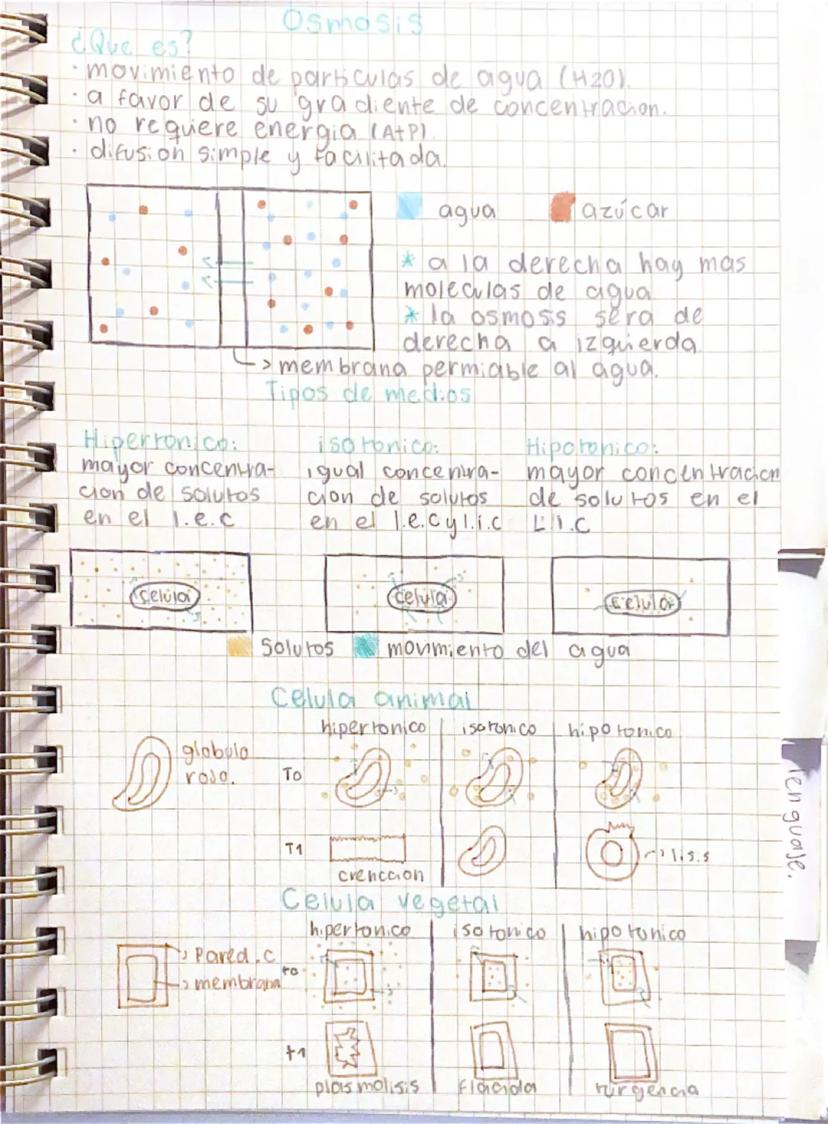 Osmosis
¿Que es?
· movimiento de particulas de agua (H2O).
· a favor de su gradiente de concentracion.
· no requiere energia (AtP).
· difusion simple y facilitada.
agua azúcar
* a la derecha hay mas
moleculas de agua
* la osmoss sera de
derecha a izquierda.
membrana permiable al agua.
Tipos de medios
Hipertonico: isotonico: Hipotonico:
mayor concentra- igual concentra- mayor concentracion
cion de solutos cion de solutos de solutos en el
en el l.e.c en el l.e.c y l.i.c L.I.C
celula celula celula
Solutos movimiento del agua
Celula animal
hipertonico isotonico hipotonico
globulo
rojo.
To
T1
lisis
crenccion
Celula vegetal
hipertonico isotonico hipotonico
Pared.c
membrana
to
t1
plasmolisis flacida turgencia
lenguaje.